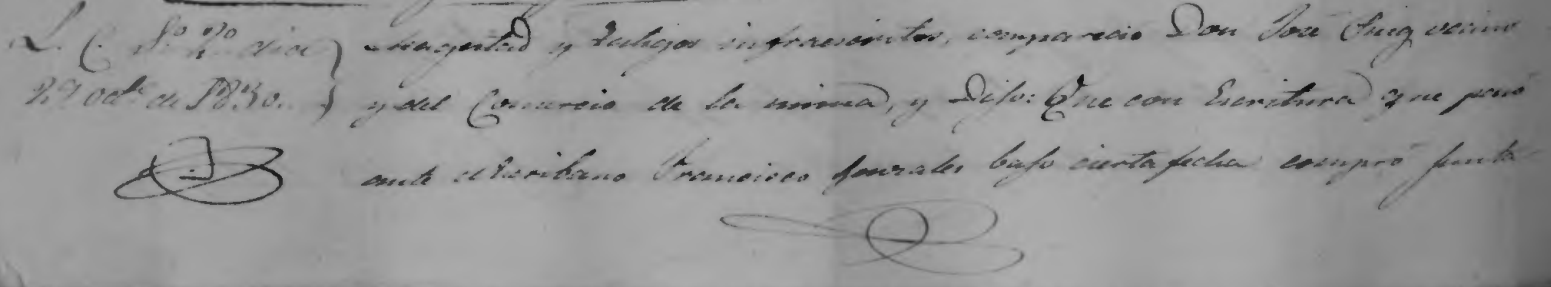 L. C. S.º 2.º dia
27 oct.e de 1830.
Magestad y testigos infraescritos, comparecio Don José Puig vecino
y del Comercio de la misma, y Dijo: Que con Escritura que pasó
ante el Escribano Francisco Gonzales bajo cierta fecha compró junta